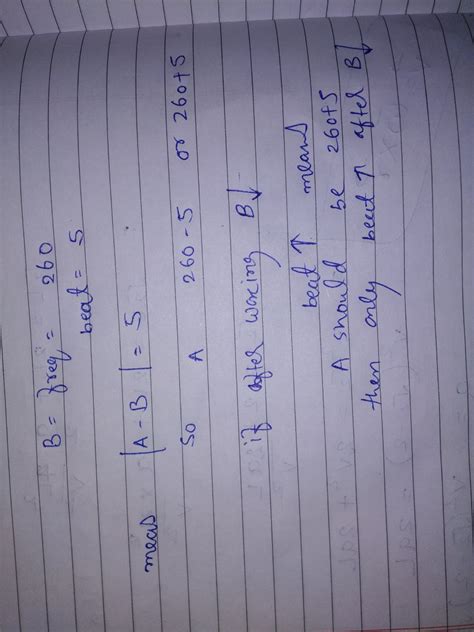 B = freq = 260
beat = 5
means |A - B| = 5
So A 260 - 5 or 260+5
if after waxing B↓
beat ↑ means
A should be 260+5
then only beat ↑ after B↓